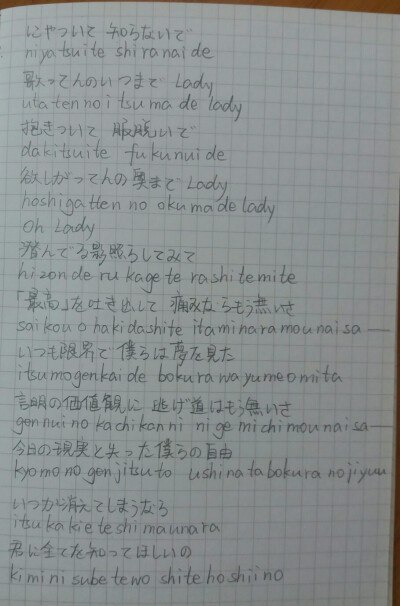 にやついて 知らないで
niyatsuite shiranai de
歌ってんのいつまで Lady
utatennoitsumade lady
抱きついて 服脱いで
dakitsuite fukunuide
欲しがってんの奥まで Lady
hoshigatten no okumade lady
Oh Lady
潜んでる影照らしてみて
hizonderu kage terashitemite
「最高」を吐き出して 痛みならもう無いさ
saikou o hakidashite itaminaramounaisa —
いつも限界で僕らは夢を見た
itsumogenkaide bokurawayumeomita
言明の価値観に 逃げ道はもう無いさ
gennuino kachikanni nigemichimounaisa —
今日の現実と失った僕らの自由
kyomonogenjitsuto ushinatabokuranojiyuu
いつか消えてしまうなら
itsukakieteshimaunara
君に全てを知ってほしいの
kiminisubetewo shitehoshiino